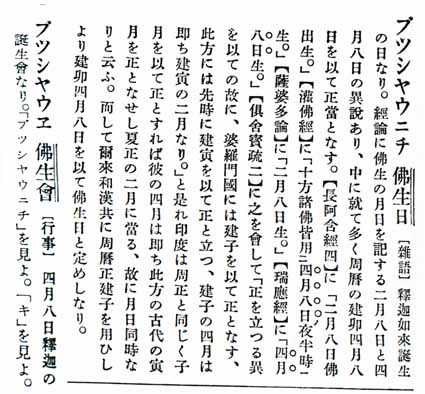 ブツシヤウニチ 佛生日 〔雜語〕 釋迦如來誕生
の日なり。經論に佛生の月日を記する二月八日と四
月八日の異說あり、中に就て多く周曆の建卯四月八
日を以て正當となす。【長阿含經四】に「二月八日佛
出生。」【灌佛經】に「十方諸佛皆用二四月八日夜半時一
生。」【薩婆多論】に「二月八日生。」【瑞應經】に「四月
八日生。」【俱舍寶疏二】に之を會して「正を立つる異
を以ての故に、婆羅門國には建子を以て正となす、
此方には先時に建寅を以て正と立つ、建子の四月は
即ち建寅の二月なり。」と是れ印度は周正と同じく子
月を以て正とすれば彼の四月は即ち此方の古代の寅
月を正となせし夏正の二月に當る、故に月日同時な
りと云ふ。而して爾來和漢共に周曆正建子を用ひし
より建卯四月八日を以て佛生日と定めしなり。
ブツシヤウヱ 佛生會 〔行事〕 四月八日釋迦の
誕生會なり。「ブツシヤウニチ」を見よ。「キ」を見よ。